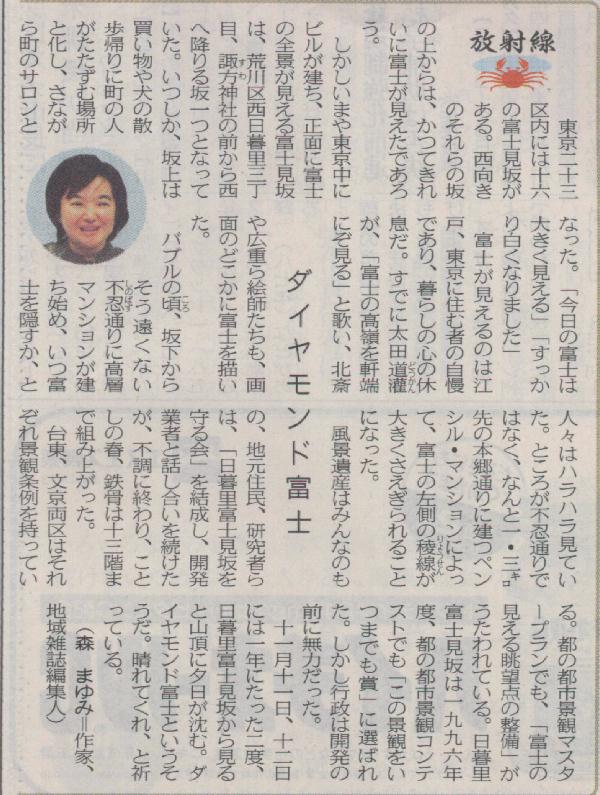 放射線
東京二十三
区内には十六
の富士見坂が
ある。西向き
のそれらの坂
の上からは、かつてきれ
いに富士が見えたであろ
う。
しかしいまや東京中に
ビルが建ち、正面に富士
の全景が見える富士見坂
は、荒川区西日暮里三丁
目、諏方神社の前から西
へ降りる坂一つとなって
いた。いつしか、坂上は
買い物や犬の散
歩帰りに町の人
がたたずむ場所
と化し、さなが
ら町のサロンと
なった。「今日の富士は
大きく見える」「すっか
り白くなりました」
富士が見えるのは江
戸、東京に住む者の自慢
であり、暮らしの心の休
息だ。すでに太田道灌
が、「富士の高嶺を軒端
にぞ見る」と歌い、北斎
ダイヤモンド富士
や広重ら絵師たちも、画
面のどこかに富士を描い
た。
バブルの頃、坂下から
そう遠くない
不忍通りに高層
マンションが建
ち始め、いつ富
士を隠すか、と
人々はハラハラ見てい
た。ところが不忍通りで
はなく、なんと一・三㌔
先の本郷通りに建つペン
シル・マンションによっ
て、富士の左側の稜線が
大きくさえぎられること
になった。
風景遺産はみんなのも
の、地元住民、研究者ら
は、「日暮里富士見坂を
守る会」を結成し、開発
業者と話し合いを続けた
が、不調に終わり、こと
しの春、鉄骨は十三階ま
で組み上がった。
台東、文京両区はそれ
ぞれ景観条例を持ってい
る。都の都市景観マスタ
ープランでも、「富士の
見える眺望点の整備」が
うたわれている。日暮里
富士見坂は一九九六年
度、都の都市景観コンテ
ストでも「この景観をい
つまでも賞」に選ばれ
た。しかし行政は開発の
前に無力だった。
十一月十一日、十二日
には一年にたった二度、
日暮里富士見坂から見る
と山頂に夕日が沈む。ダ
イヤモンド富士というそ
うだ。晴れてくれ、と祈
っている。
（森　まゆみ＝作家、
地域雑誌編集人）